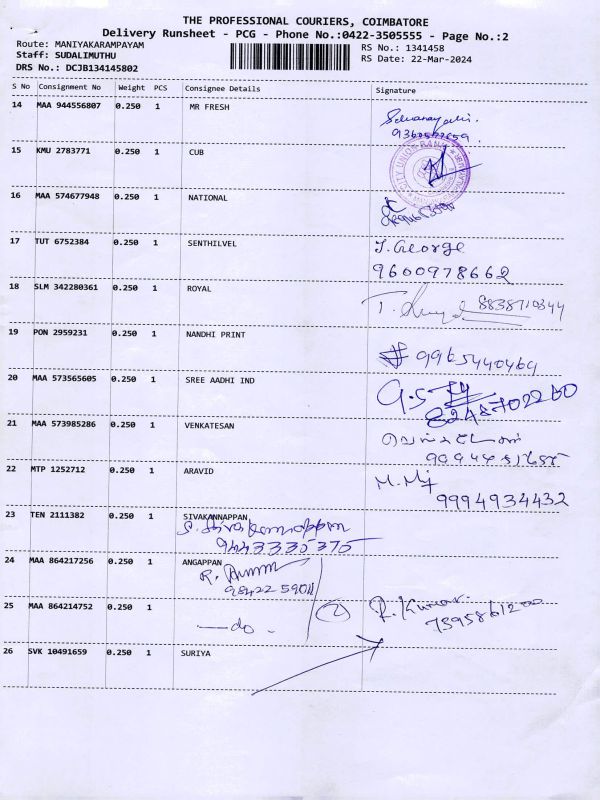 THE PROFESSIONAL COURIERS, COIMBATORE
Delivery Runsheet - PCG - Phone No.:0422-3505555 - Page No.:2
Route: MANIYAKARAMPAYAM RS No.: 1341458
Staff: SUDALIMUTHU RS Date: 22-Mar-2024
DRS No.: DCJB134145802
S No Consignment No Weight PCS Consignee Details Signature
14 MAA 944556807 0.250 1 MR FRESH
15 KMU 2783771 0.250 1 CUB
CITY UNION BANK
16 MAA 574677948 0.250 1 NATIONAL
17 TUT 6752384 0.250 1 SENTHILVEL J. George
9600978662
18 SLM 342280361 0.250 1 ROYAL
19 PON 2959231 0.250 1 NANDHI PRINT
9965440469
20 MAA 573565605 0.250 1 SREE AADHI IND
21 MAA 573985286 0.250 1 VENKATESAN
22 MTP 1252712 0.250 1 ARAVID
9994934432
23 TEN 2111382 0.250 1 SIVAKANNAPPAN
S. Sivakannappan
9443335375
24 MAA 864217256 0.250 1 ANGAPPAN
25 MAA 864214752 0.250 1 (2) R. Kumar
—do.
26 SVK 10491659 0.250 1 SURIYA